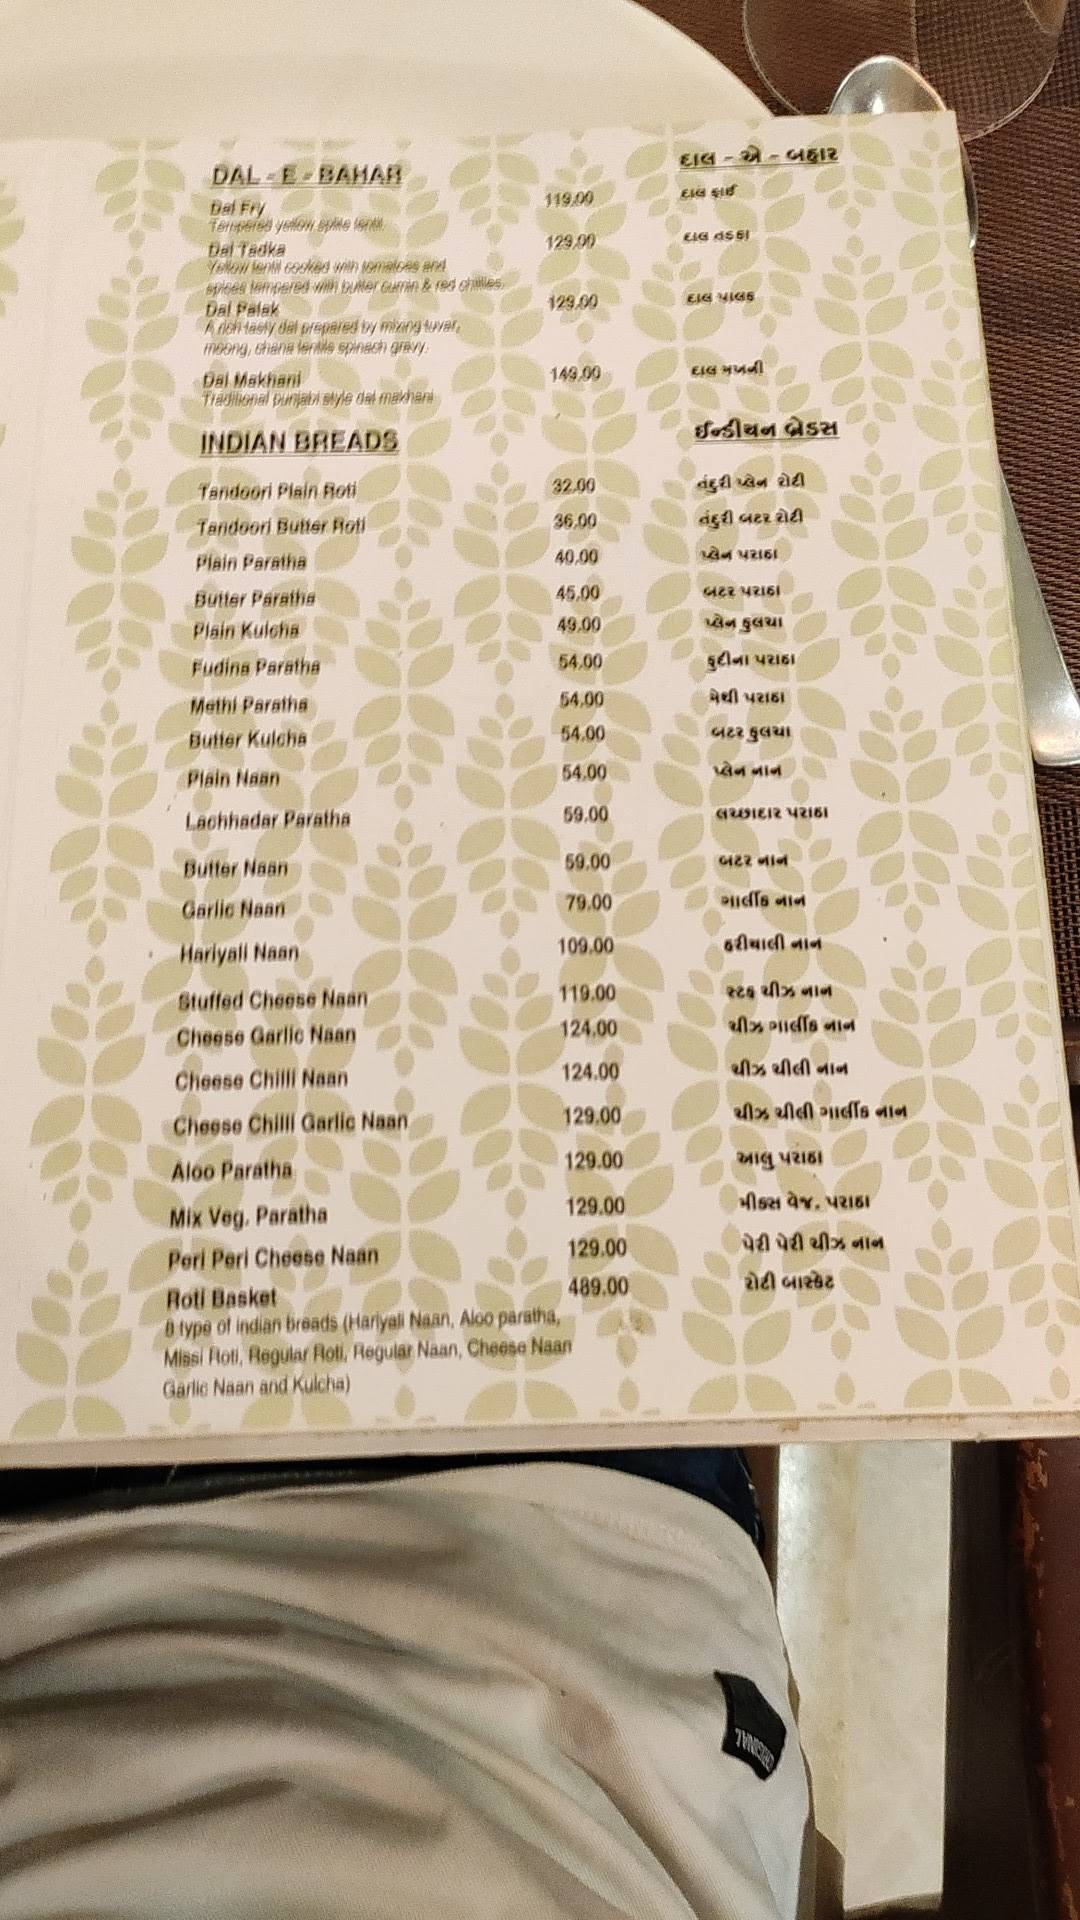 DAL - E - BAHAR દાલ - એ - બહાર
Dal Fry 119.00 દાલ ફ્રાઈ
Tempered yellow splite lentil.
Dal Tadka 129.00 દાલ તડકા
Yellow lentil cooked with tomatoes and
spices tempered with butter cumin & red chillies.
Dal Palak 129.00 દાલ પાલક
A rich tasty dal prepared by mixing tuvar,
moong, chana lentils spinach gravy.
Dal Makhani 149.00 દાલ મખની
Traditional punjabi style dal makhani
INDIAN BREADS ઈન્ડીયન બ્રેડસ
Tandoori Plain Roti 32.00 તંદુરી પ્લેન રોટી
Tandoori Butter Roti 36.00 તંદુરી બટર રોટી
Plain Paratha 40.00 પ્લેન પરાઠા
Butter Paratha 45.00 બટર પરાઠા
Plain Kulcha 49.00 પ્લેન કુલચા
Fudina Paratha 54.00 ફુદીના પરાઠા
Methi Paratha 54.00 મેથી પરાઠા
Butter Kulcha 54.00 બટર કુલચા
Plain Naan 54.00 પ્લેન નાન
Lachhadar Paratha 59.00 લચ્છાદાર પરાઠા
Butter Naan 59.00 બટર નાન
Garlic Naan 79.00 ગાર્લીક નાન
Hariyali Naan 109.00 હરીયાલી નાન
Stuffed Cheese Naan 119.00 સ્ટફ ચીઝ નાન
Cheese Garlic Naan 124.00 ચીઝ ગાર્લીક નાન
Cheese Chilli Naan 124.00 ચીઝ ચીલી નાન
Cheese Chilli Garlic Naan 129.00 ચીઝ ચીલી ગાર્લીક નાન
Aloo Paratha 129.00 આલુ પરાઠા
Mix Veg. Paratha 129.00 મીક્સ વેજ. પરાઠા
Peri Peri Cheese Naan 129.00 પેરી પેરી ચીઝ નાન
Roti Basket 489.00 રોટી બાસ્કેટ
8 type of indian breads (Hariyali Naan, Aloo paratha,
Missi Roti, Regular Roti, Regular Naan, Cheese Naan
Garlic Naan and Kulcha)
ORIGINAL